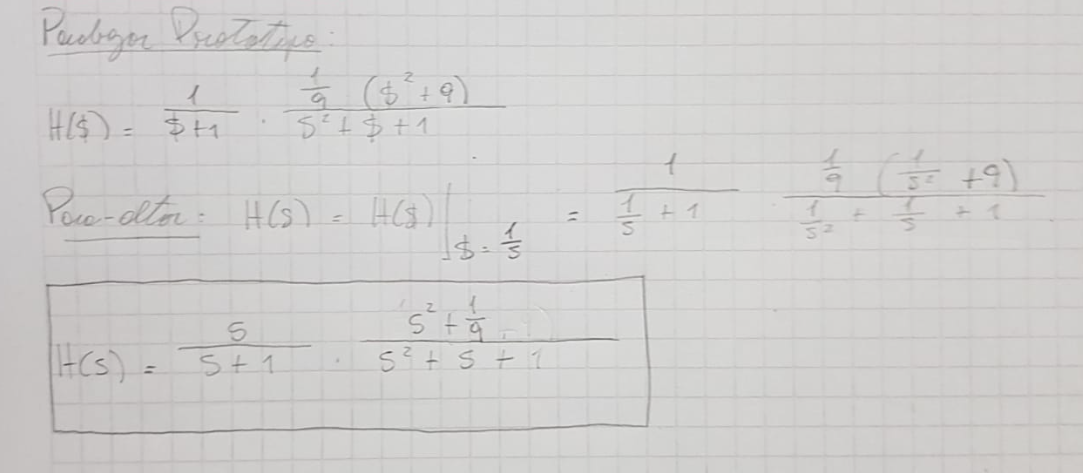 Pasabajos Prototipo:
H($) = 1/($+1) · (1/9 ($²+9))/(S²+$+1)
Paso-altos: H(S) = H($)|_{$=1/S} = 1/(1/S + 1) (1/9 (1/S² + 9))/(1/S² + 1/S + 1)
H(S) = S/(S+1) · (S² + 1/9)/(S² + S + 1)